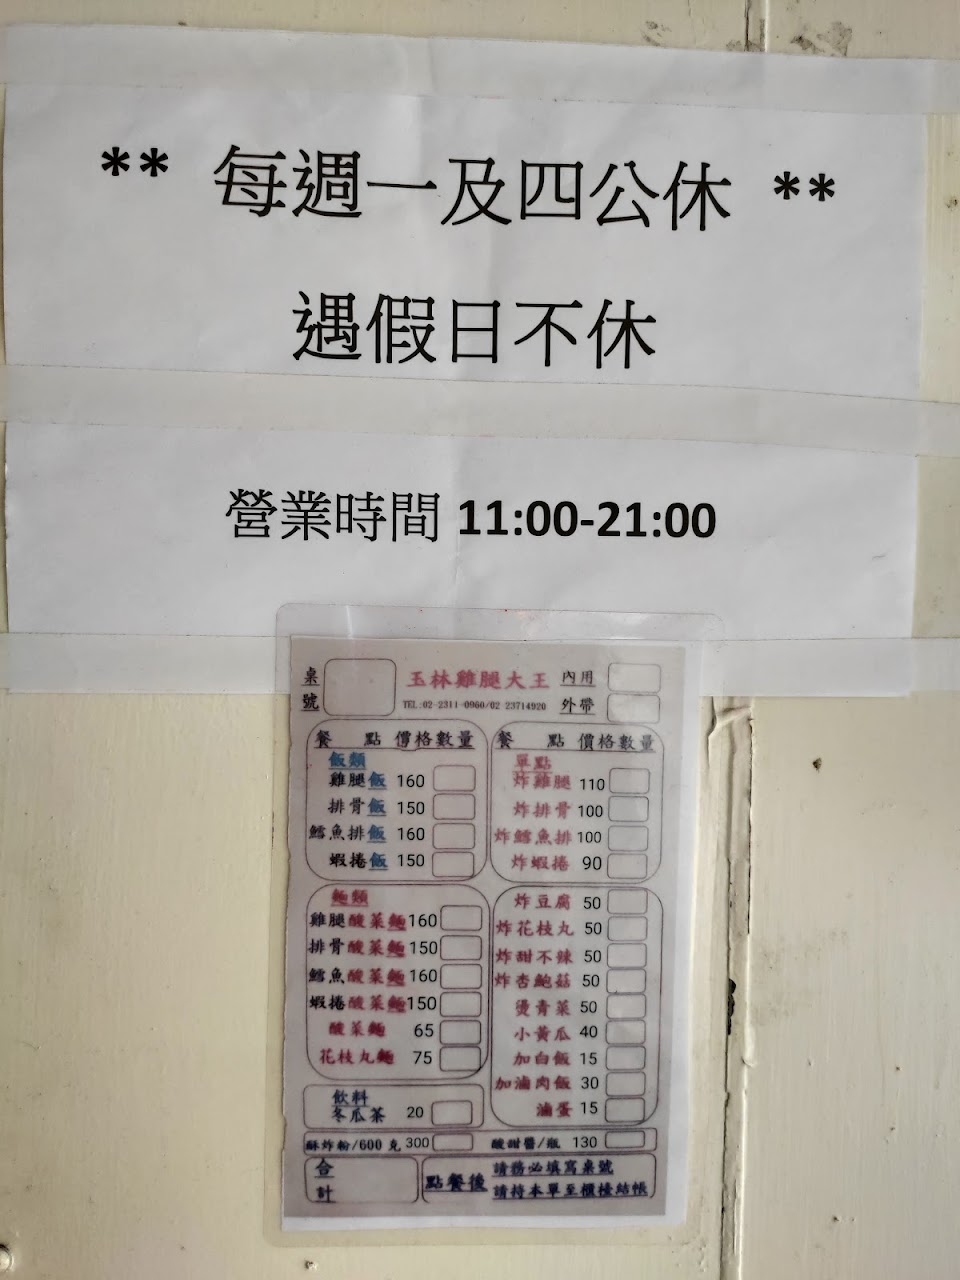 ** 每週一及四公休 **
遇假日不休
營業時間 11:00-21:00
桌號
玉林雞腿大王
TEL:02-2311-0960/02 23714920
內用
外帶
餐 點 價格數量
飯類
雞腿飯 160
排骨飯 150
鱈魚排飯 160
蝦捲飯 150
麵類
雞腿酸菜麵 160
排骨酸菜麵 150
鱈魚酸菜麵 160
蝦捲酸菜麵 150
酸菜麵 65
花枝丸麵 75
飲料
冬瓜茶 20
餐 點 價格數量
單點
炸雞腿 110
炸排骨 100
炸鱈魚排 100
炸蝦捲 90
炸豆腐 50
炸花枝丸 50
炸甜不辣 50
炸杏鮑菇 50
燙青菜 50
小黃瓜 40
加白飯 15
加滷肉飯 30
滷蛋 15
酥炸粉/600 克 300
酸甜醬/瓶 130
合計
點餐後
請務必填寫桌號
請持本單至櫃檯結帳